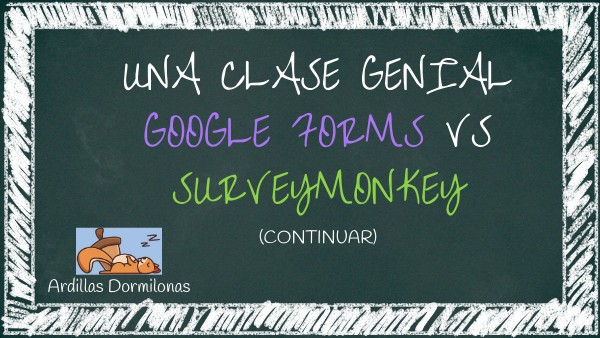 UNA CLASE GENIAL
GOOGLE FORMS VS
SURVEYMONKEY
(CONTINUAR)
Z Z Z
Ardillas Dormilonas